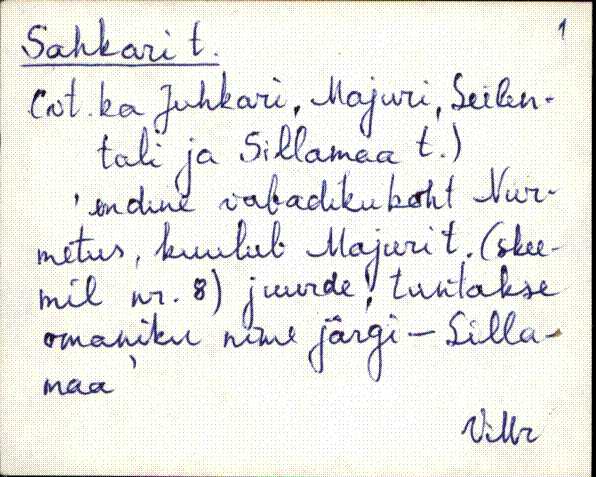 1
Sahkari t.
(vt. ka Juhkari, Majuri, Seilen-
tali ja Sillamaa t.)
'endine vabadikukoht Nur-
metus, kuulub Majuri t. (skee-
mil nr. 8) juurde, tuntakse
omaniku nime järgi – Silla-
maa'
VMr